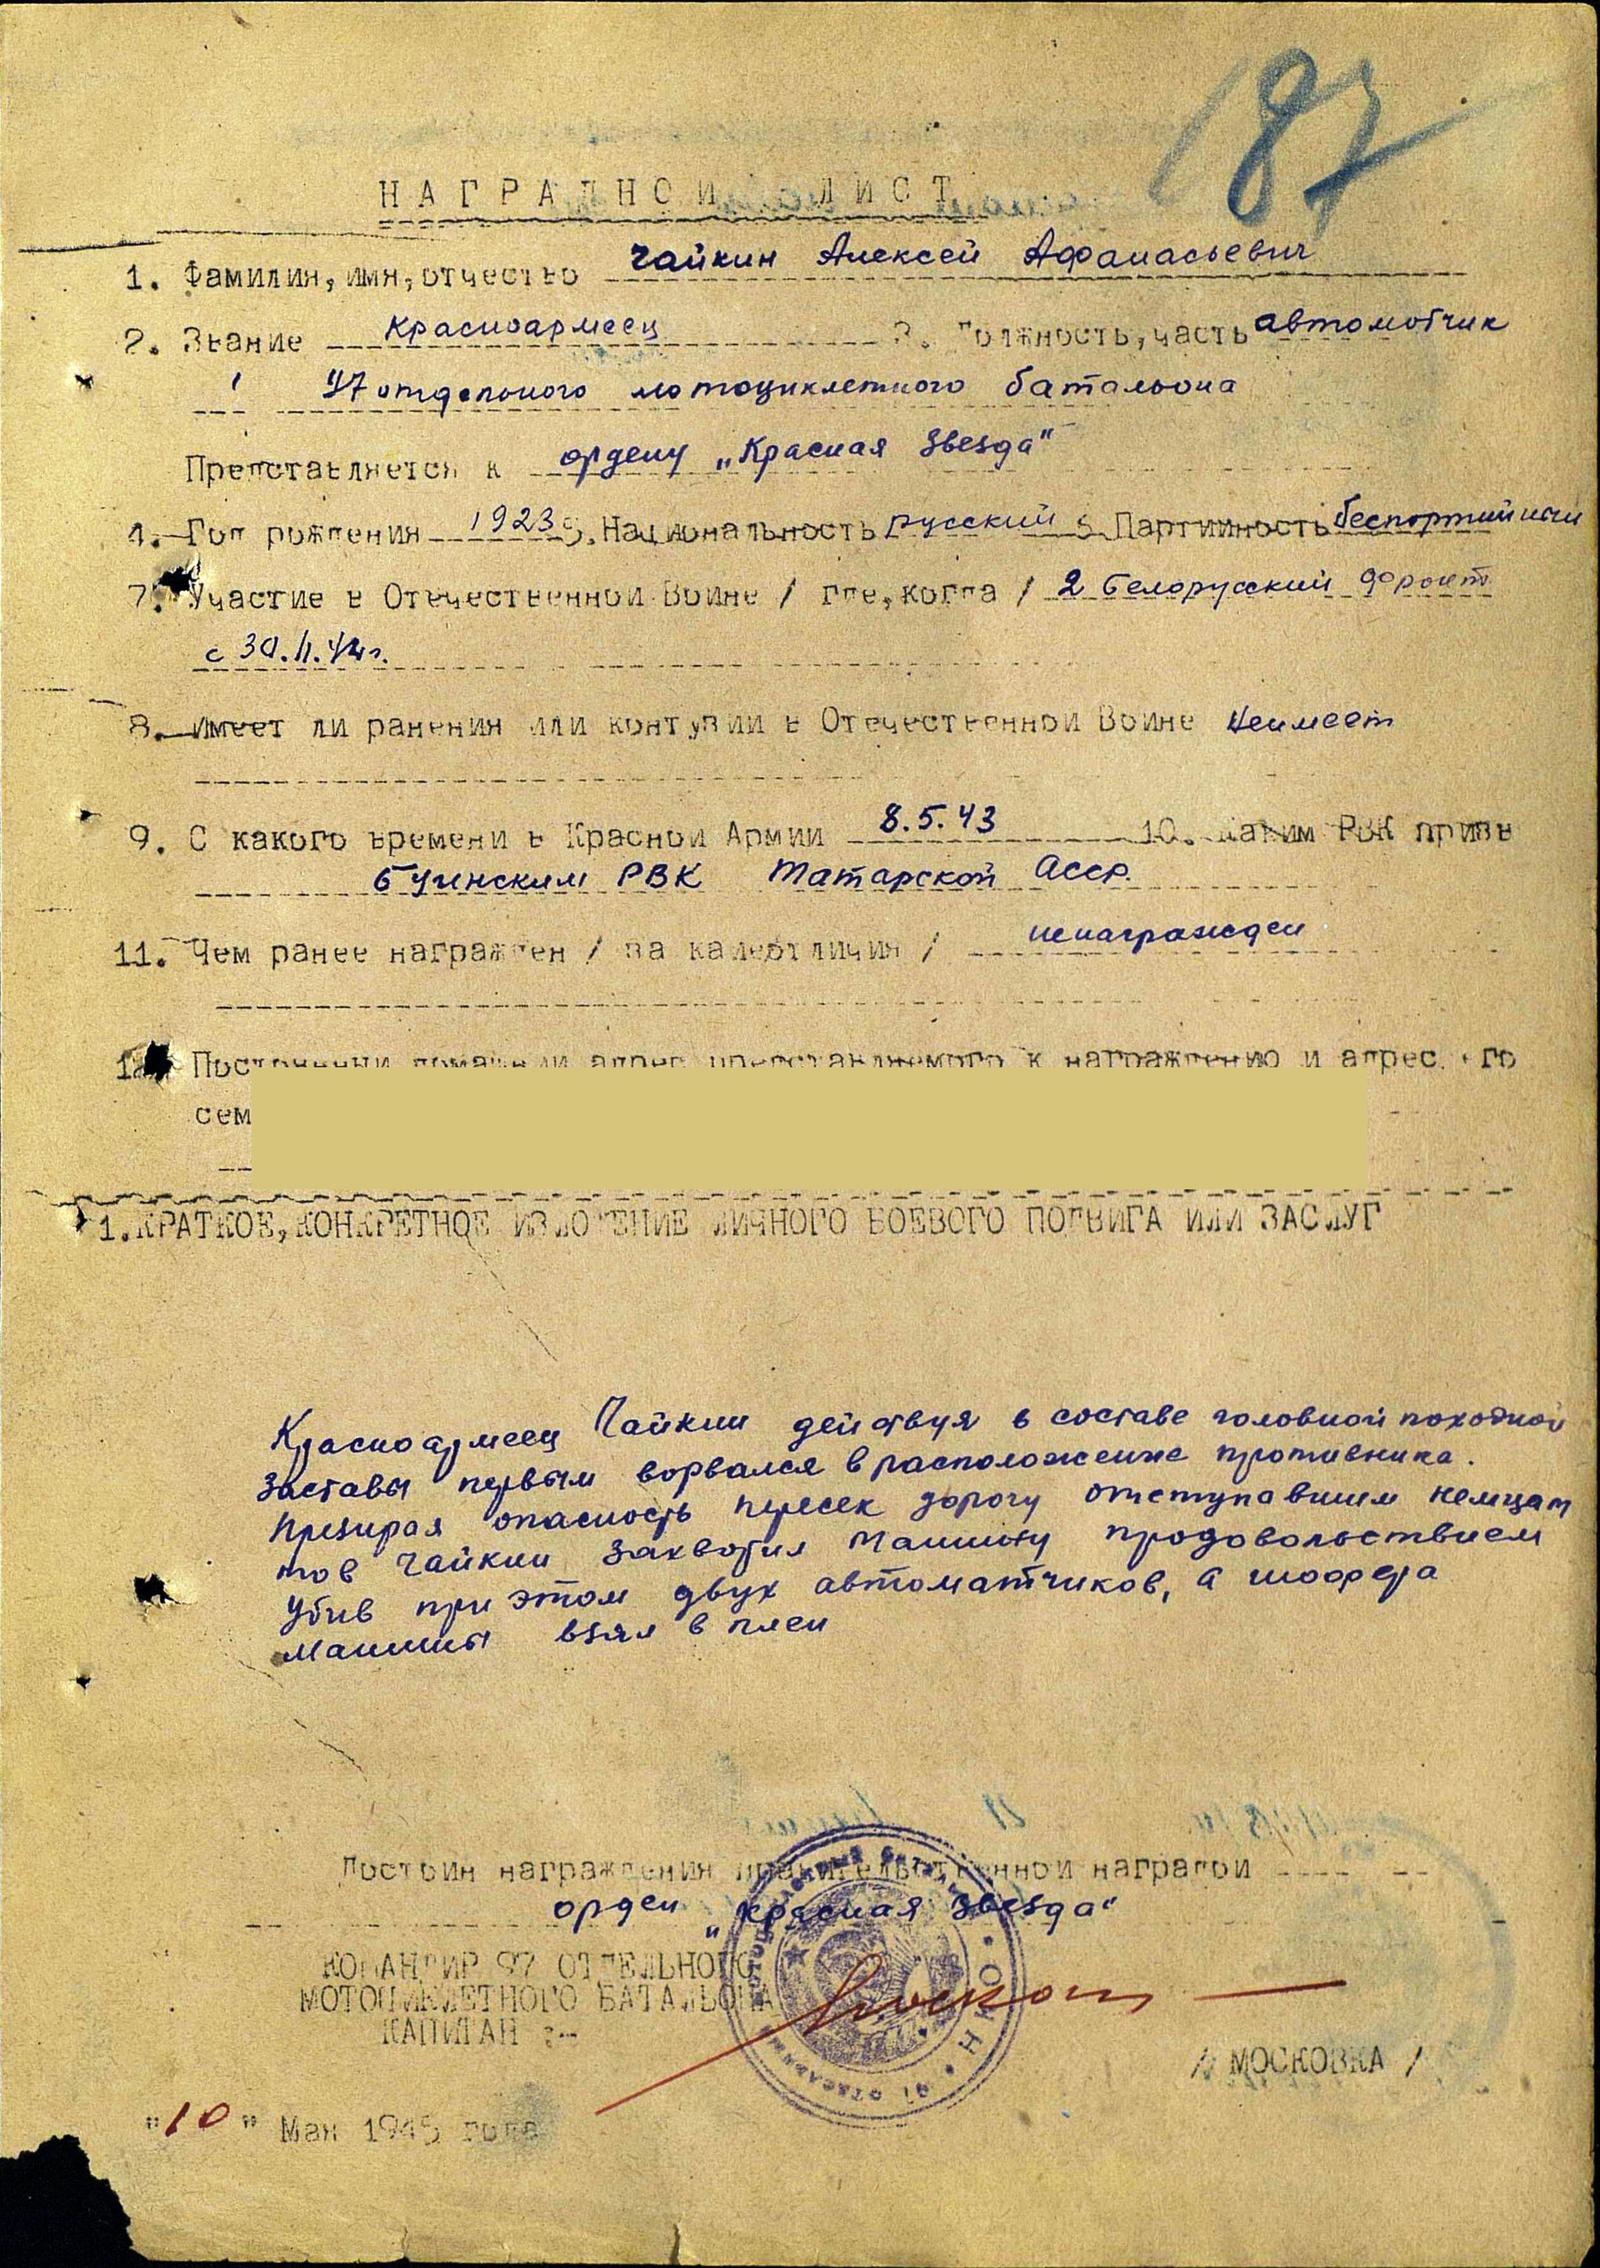 187
НАГРАДНОЙ ЛИСТ
1. Фамилия, имя, отчество Чайкин Алексей Афанасьевич
2. Звание Красноармеец 3. Должность, часть автоматчик
97 отдельного мотоциклетного батальона
Представляется к ордену „Красная Звезда"
4. Год рождения 1923 5. Национальность русский 6 Партийность беспартийный
7. Участие в Отечественной Войне / где, когда / 2 Белорусский фронт
с 30.11.44г.
8. Имеет ли ранения или контузии в Отечественной Войне неимеет
9. С какого времени в Красной Армии 8.5.43 10. Каким РВК призв
Буинским РВК Татарской АССР.
11. Чем ранее награжден / за какие отличия / ненагражден
12 Постоянный домашний адрес представляемого к награждению и адрес его
сем
1. КРАТКОЕ, КОНКРЕТНОЕ ИЗЛОЖЕНИЕ ЛИЧНОГО БОЕВОГО ПОДВИГА ИЛИ ЗАСЛУГ
Красноармеец Чайкин действуя в составе головной походной
заставы первым ворвался в расположение противника.
Презирая опасность пересек дорогу отступавшим немцам
тов Чайкин захватил машину продовольствием
убив при этом двух автоматчиков, а шофера
машины взял в плен
Достоин награждения правительственной наградой
орден „Красная Звезда"
КОМАНДИР 97 ОТДЕЛЬНОГО
МОТОЦИКЛЕТНОГО БАТАЛЬОНА
КАПИТАН :-
/ МОСКОВКА /
"10" Мая 1945 года
НКО